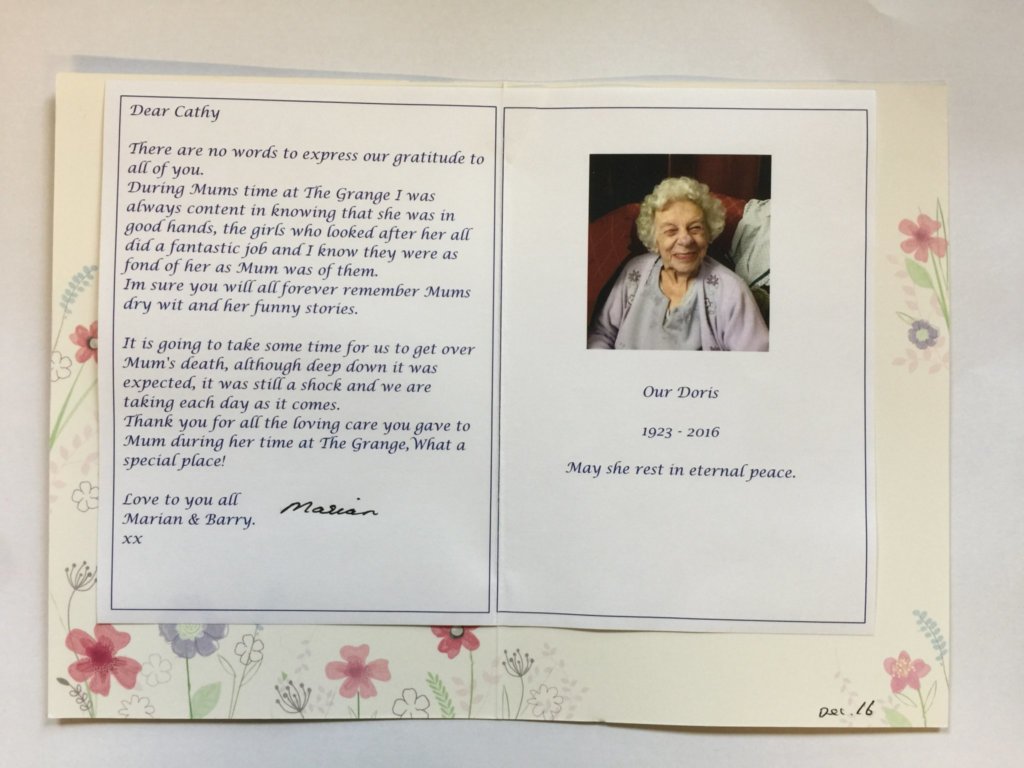 Dear Cathy
There are no words to express our gratitude to
all of you.
During Mums time at The Grange I was
always content in knowing that she was in
good hands, the girls who looked after her all
did a fantastic job and I know they were as
fond of her as Mum was of them.
Im sure you will all forever remember Mums
dry wit and her funny stories.
It is going to take some time for us to get over
Mum's death, although deep down it was
expected, it was still a shock and we are
taking each day as it comes.
Thank you for all the loving care you gave to
Mum during her time at The Grange,What a
special place!
Love to you all
Marian & Barry.
xx
Marian
Our Doris
1923 - 2016
May she rest in eternal peace.
Dec. 16